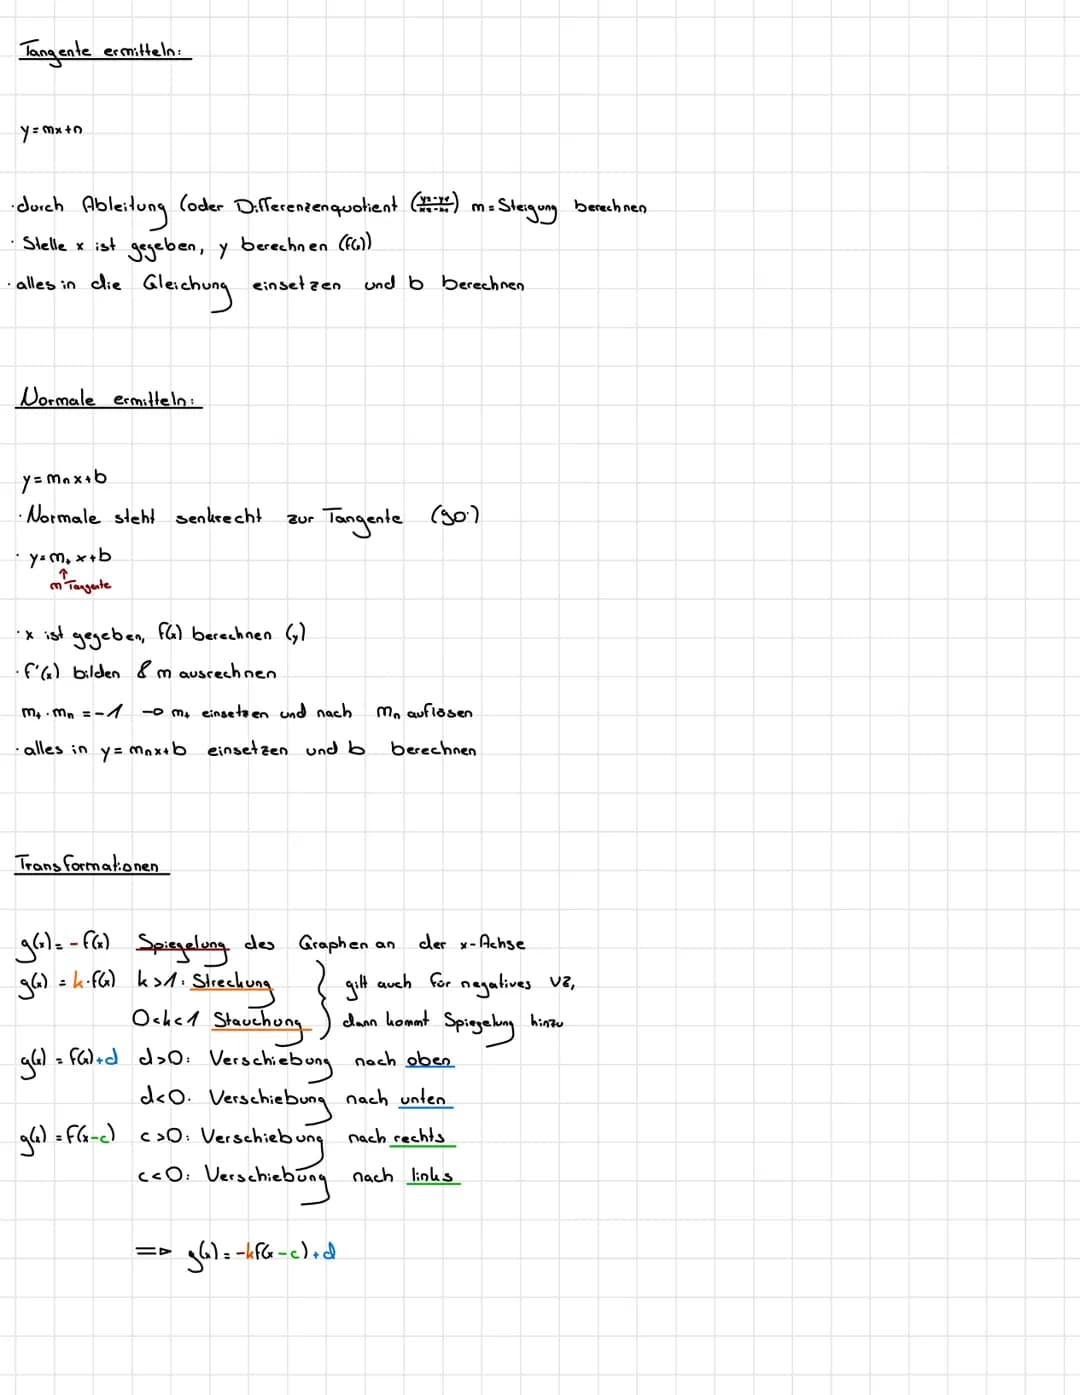 Tangente ermitteln:
y=mx+n
·durch Ableitung (oder Differenzenquotient () m=Steigung berechnen
·Stelle x ist gegeben, y berechnen (f(x))
·alles in die Gleichung einsetzen und b berechnen
Normale ermitteln:
y=mₙx+b
·Normale steht senkrecht zur Tangente (90°)
·y=mₜx+b
↑
m Tangente
·x ist gegeben, f(x) berechnen (y)
·f'(x) bilden & m ausrechnen
mₜ·mₙ=-1 → mₜ einsetzen und nach mₙ auflösen
·alles in y=mₙx+b einsetzen und b berechnen
Transformationen
g(x)=-f(x) Spiegelung des Graphen an der x-Achse
g(x)=k·f(x) k>1: Streckung } gilt auch für negatives VZ,
0<k<1 Stauchung } dann kommt Spiegelung hinzu
g(x)=f(x)+d d>0: Verschiebung nach oben
d<0: Verschiebung nach unten
g(x)=f(x-c) c>0: Verschiebung nach rechts
c<0: Verschiebung nach links
=> g(x)=-kf(x-c)+d